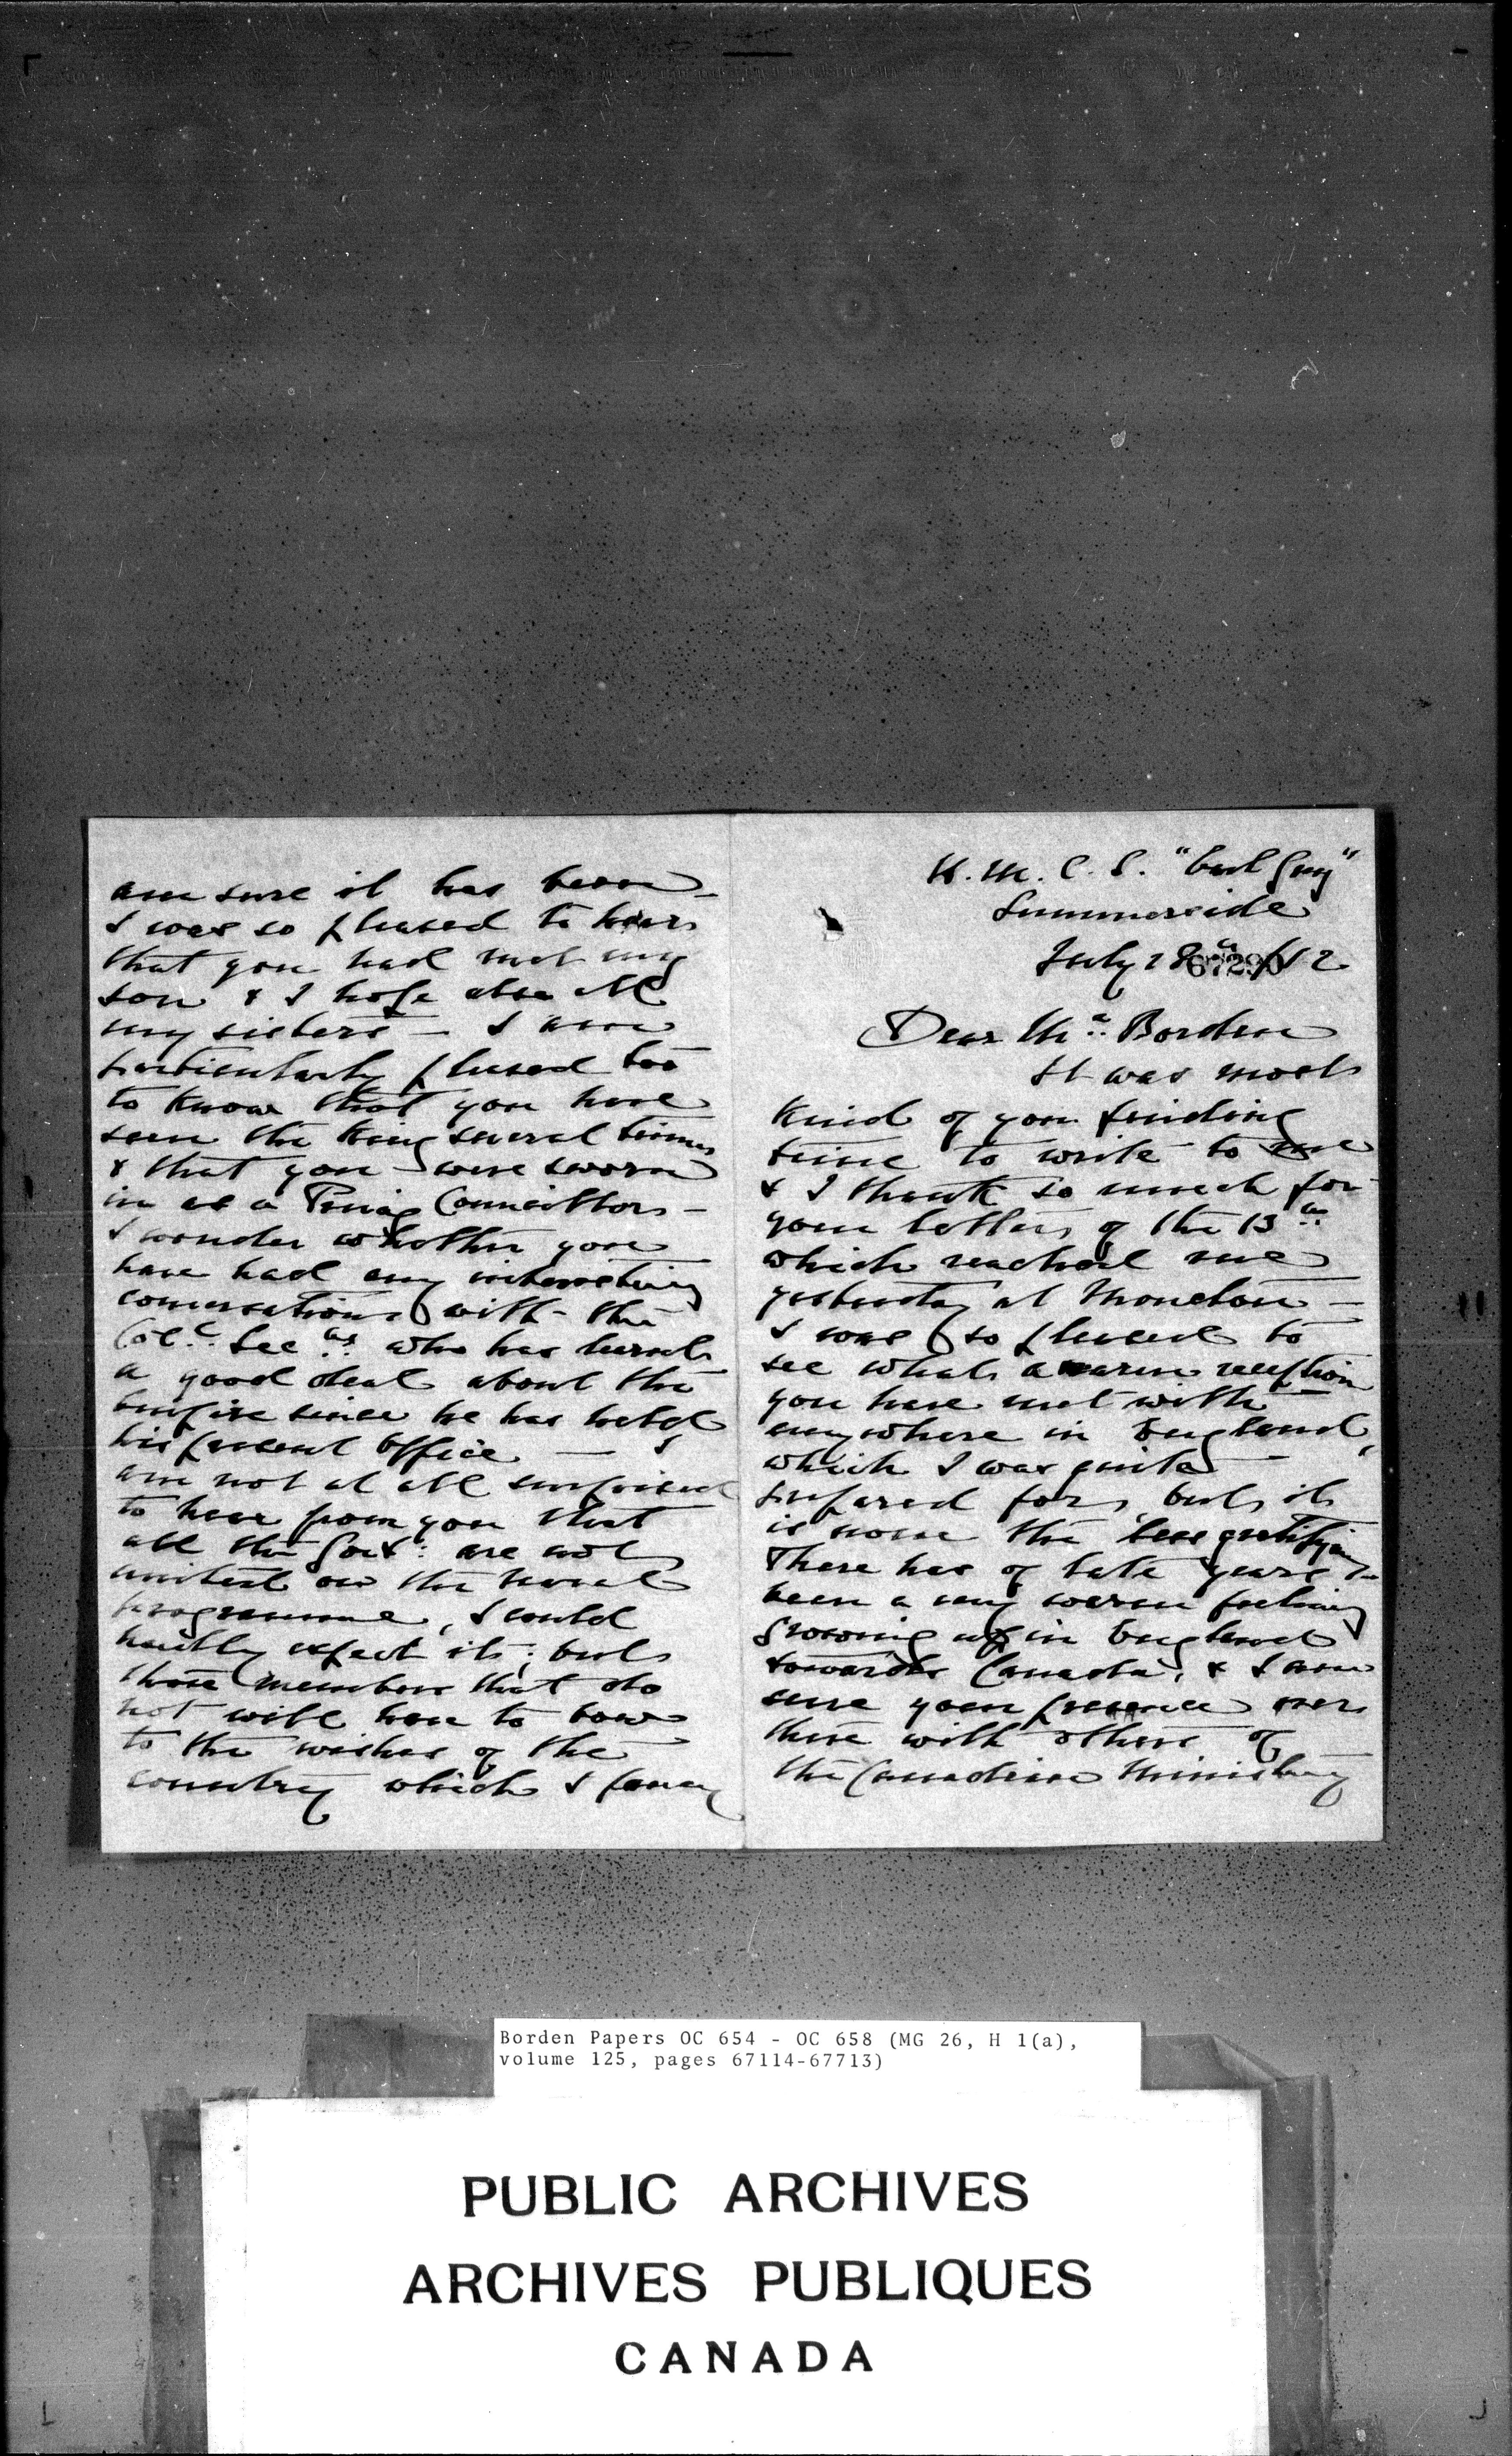 H. M. C. S. "Earl Grey"
Summerside
July 28th /12
67290
Dear Mr. Borden
It was most
kind of you finding
time to write to me
& I thank so much for
your letter of the 13th
which reached me
yesterday at Moncton —
I was so pleased to
see what a warm reception
you have met with
anywhere in England,
which I was quite
prepared for, but it
is none the less gratifying
There has of late years
been a very warm feeling
growing up in England
towards Canada, & I am
sure your presence over
there with others of
the Canadian Ministry
am sure it has been —
I was so pleased to hear
that you had met my
son & I hope also all
my sisters — I am
particularly pleased too
to know that you have
seen the King several times
& that you were sworn
in as a Privy Councillor —
I wonder whether you
have had any interesting
conversations with the
Col: Secy: who has learnt
a good deal about the
Empire since he has held
his present office — I
am not at all surprised
to hear from you that
all the Govt: are not
united on the naval
programme, I could
hardly expect it; but
those members that do
not will have to bow
to the wishes of the
country which I fancy
Borden Papers OC 654 - OC 658 (MG 26, H 1(a),
volume 125, pages 67114-67713)
PUBLIC ARCHIVES
ARCHIVES PUBLIQUES
CANADA